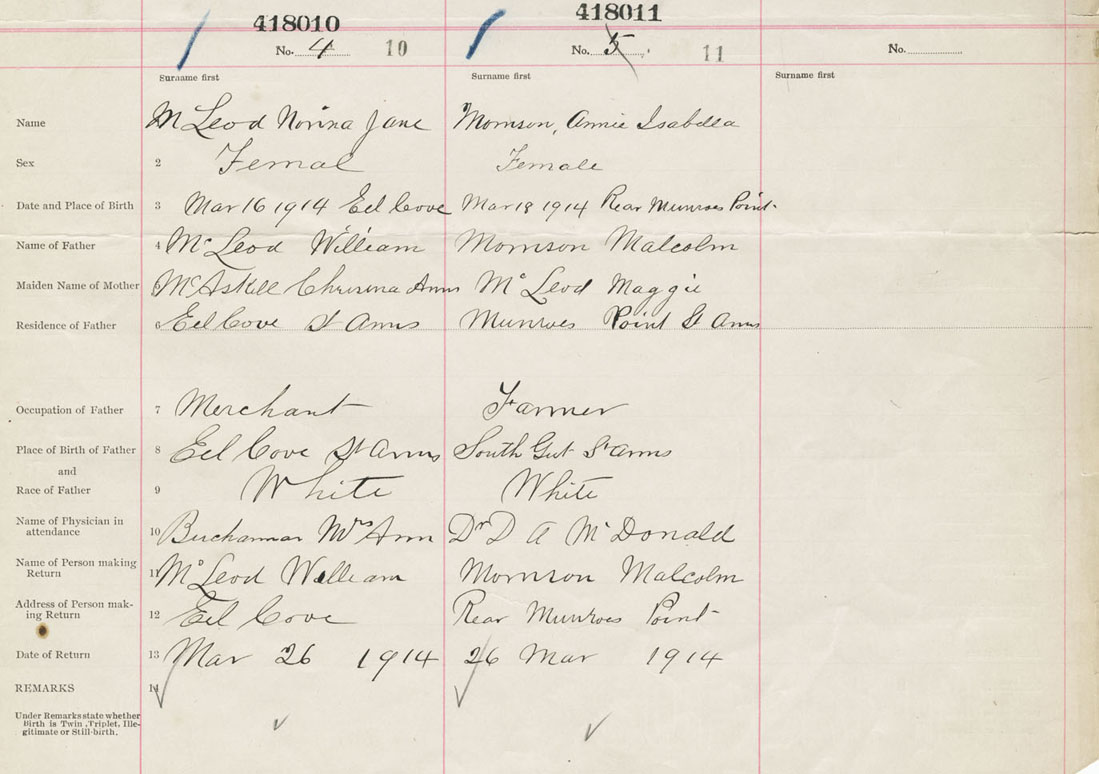 418010 418011
No. 4 10 No. 5 11 No.
Surname first Surname first Surname first
Name McLeod Norina Jane Morrison, Annie Isabella
Sex 2 Femal Female
Date and Place of Birth 3 Mar 16 1914 Eel Cove Mar 18 1914 Rear Munroes Point
Name of Father 4 McLeod William Morrison Malcolm
Maiden Name of Mother 5 McAskill Christina Ann McLeod Maggie
Residence of Father 6 Eel Cove St Anns Munroes Point St Anns
Occupation of Father 7 Merchant Farmer
Place of Birth of Father 8 Eel Cove St Anns South Gut St Anns
and
Race of Father 9 White White
Name of Physician in
attendance 10 Buchannan Mrs Ann Dr D A McDonald
Name of Person making
Return 11 McLeod William Morrison Malcolm
Address of Person mak-
ing Return 12 Eel Cove Rear Munroes Point
Date of Return 13 Mar 26 1914 26 Mar 1914
REMARKS 14
Under Remarks state whether
Birth is Twin, Triplet, Ille-
gitimate or Still-birth.